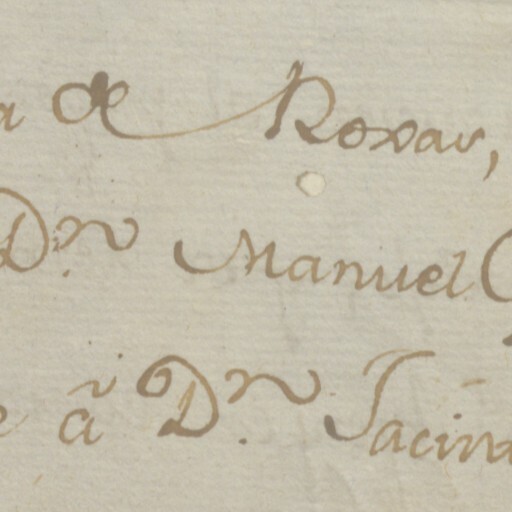 a de Roxas,
Dn. Manuel
e â Dn. Jacin